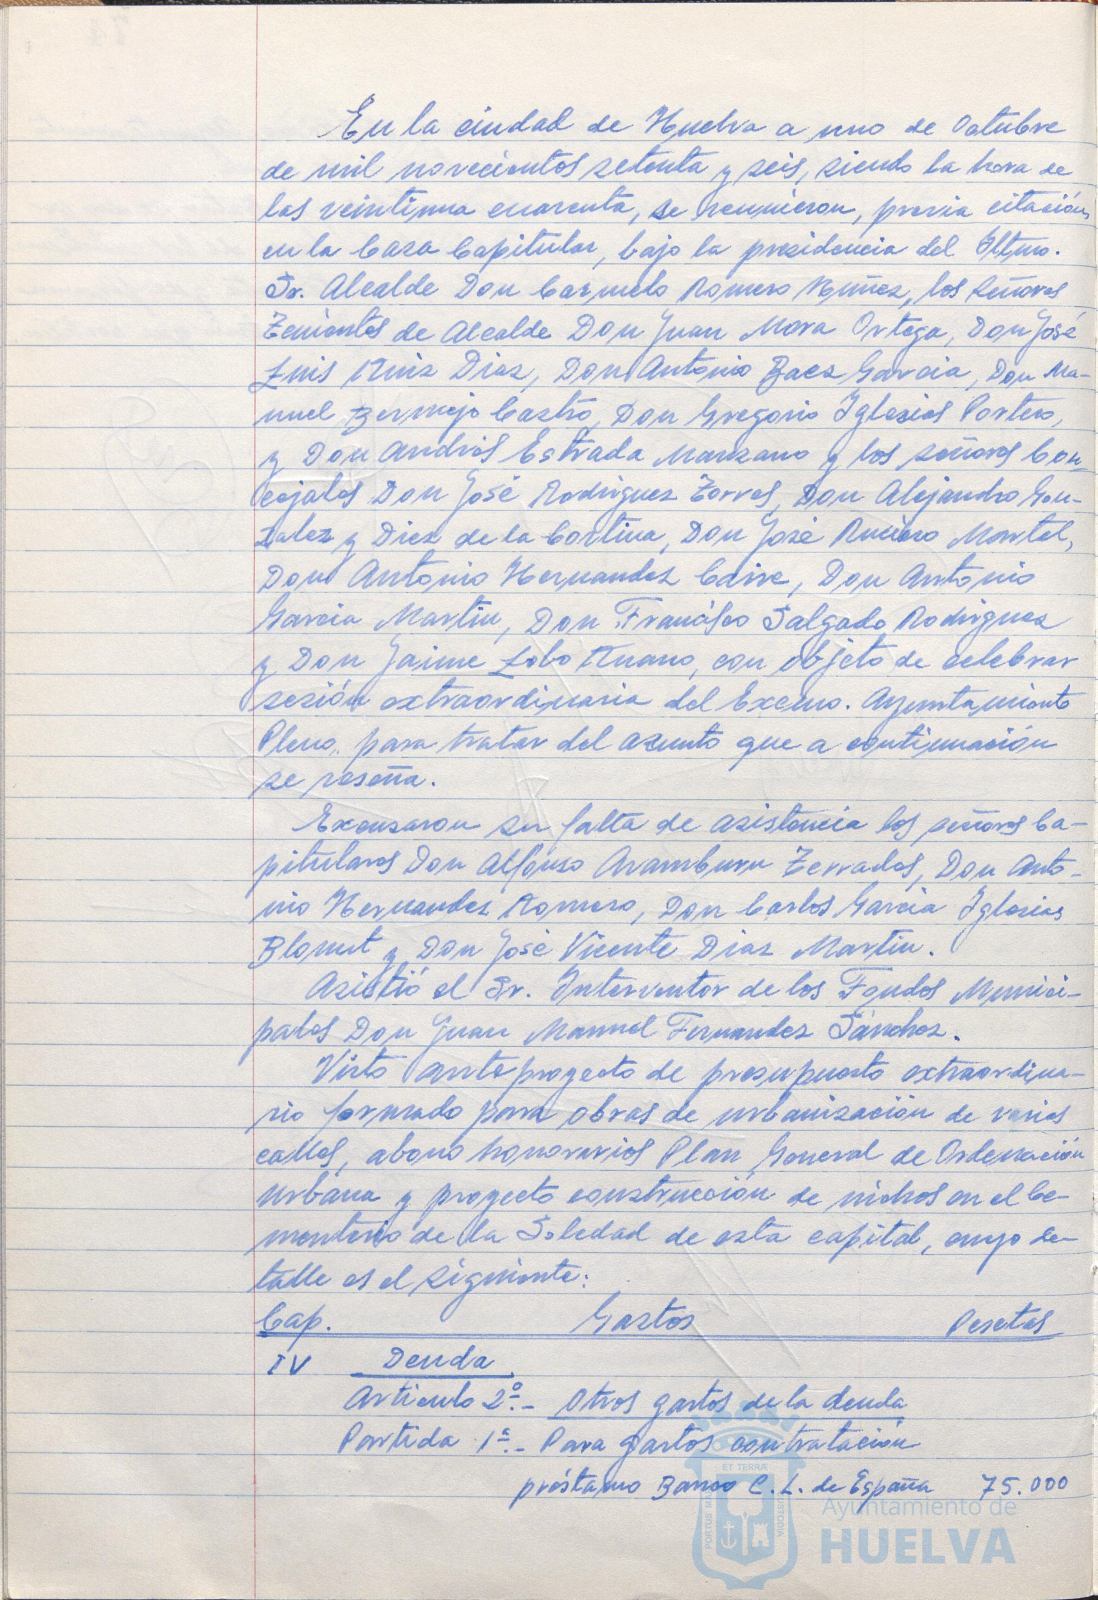 En la ciudad de Huelva a uno de Octubre
de mil novecientos setenta y seis, siendo la hora de
las veintiuna cuarenta, se reunieron, previa citación,
en la Casa Capitular, bajo la presidencia del Iltmo.
Sr. Alcalde Don Carmelo Romero Núñez, los señores
Tenientes de Alcalde Don Juan Mora Ortega, Don José
Luis Ruiz Diaz, Don Antonio Baez Garcia, Don Ma-
nuel Bermejo Castro, Don Gregorio Iglesias Portero,
y Don Andrés Estrada Manzano y los señores Con-
cejales Don José Rodriguez Torres, Don Alejandro Gon-
zalez y Diez de la Cortina, Don José Ruciero Martel,
Don Antonio Hernandez Caire, Don Antonio
Garcia Martin, Don Francisco Salgado Rodriguez
y Don Jaime Lobo Ruano, con objeto de celebrar
sesión extraordinaria del Excmo. Ayuntamiento
Pleno, para tratar del asunto que a continuación
se reseña.
Excusaron su falta de asistencia los señores Ca-
pitulares Don Alfonso Aramburu Terrades, Don Anto-
nio Hernandez Romero, Don Carlos Garcia Iglesias
y Don José Vicente Diaz Martin.
Asistió el Sr. Interventor de los Fondos Munici-
pales Don Juan Manuel Fernandez Sánchez.
Visto anteproyecto de presupuesto extraordina-
rio formado para obras de urbanización de varias
calles, abono honorarios Plan General de Ordenación
Urbana y proyecto construcción de nichos en el Ce-
menterio de la Soledad de esta capital, cuyo de-
talle es el siguiente:
Cap. Gastos Pesetas
IV Deuda
Articulo 2º.- Otros gastos de la deuda
Partida 1ª.- Para gastos contratación
préstamo Banco C. L. de España 75.000
ET TERRA
PORTUS MARIS
CUSTODIA
Ayuntamiento de
HUELVA